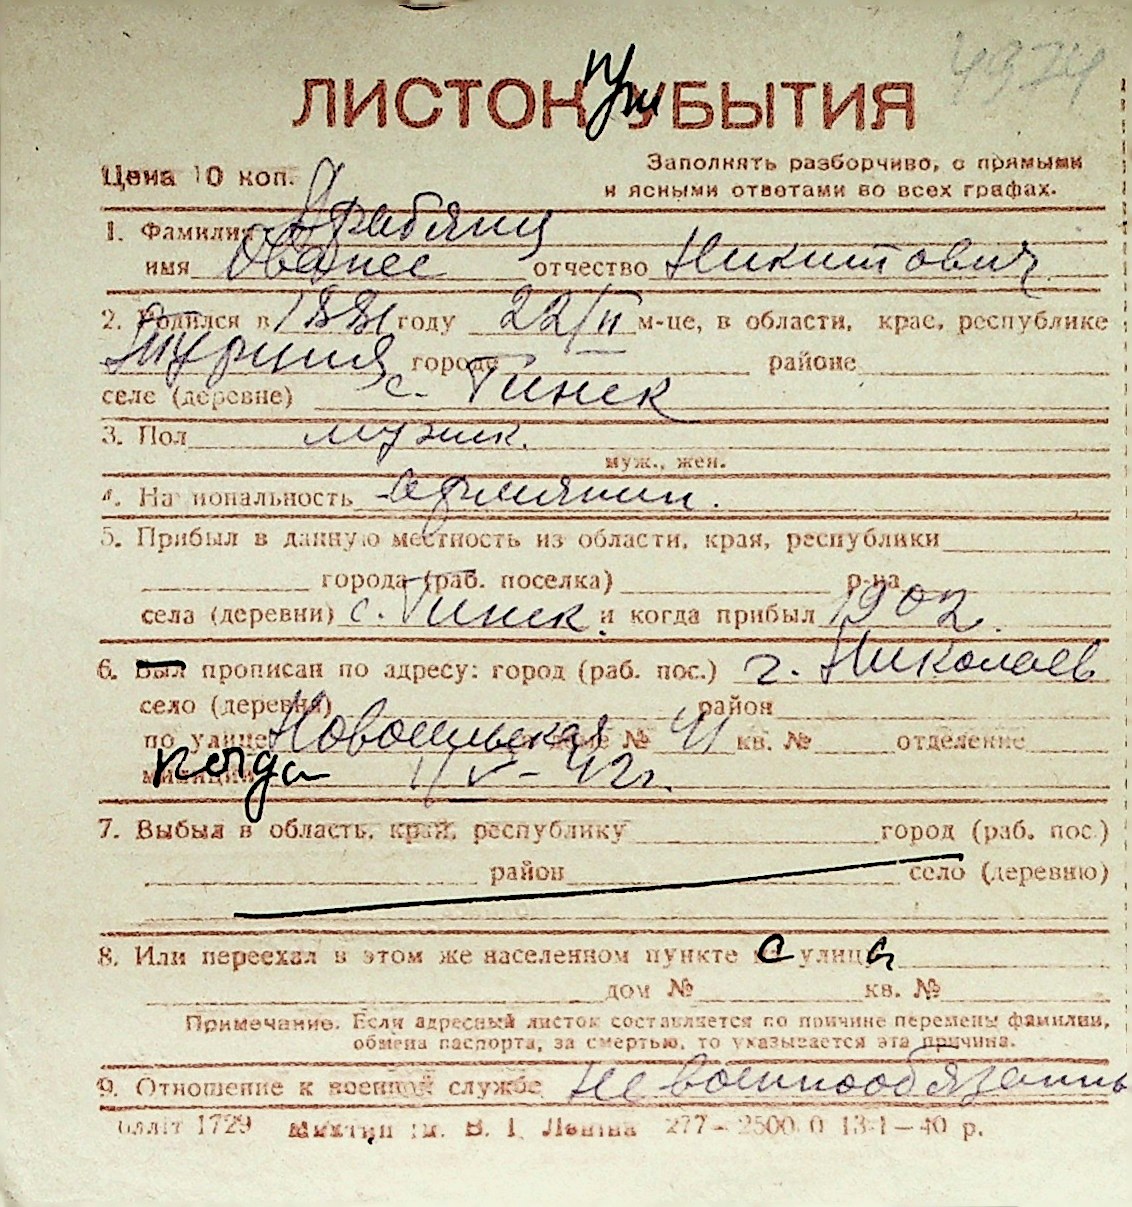 4974
ЛИСТОК при УБЫТИЯ
Цена 10 коп.
Заполнять разборчиво, с прямыми
и ясными ответами во всех графах.
1. Фамилия Арабянц
имя Ованес отчество Никитович
2. Родился в 1881 году 22/II м-це, в области, крае, республике
Турция городе районе
селе (деревне) с. Гинек
3. Пол мужск.
муж., жен.
4. Национальность Армянин.
5. Прибыл в данную местность из области, края, республики
города (раб. поселка) р-на
села (деревни) с. Гинек и когда прибыл 1902.
6. Был прописан по адресу: город (раб. пос.) г. Николаев
село (деревня) район
по улице доме № 41 кв. № отделение
милиции когда 1/V-42г.
7. Выбыл в область, край, республику город (раб. пос.)
район село (деревню)
8. Или переехал в этом же населенном пункте с улицы
дом № кв. №
Примечание. Если адресный листок составляется по причине перемены фамилии,
обмена паспорта, за смертью, то указывается эта причина.
9. Отношение к военной службе Невоеннообязань
1729 В. І. Леніна 277–2500.0 13-1–40 р.